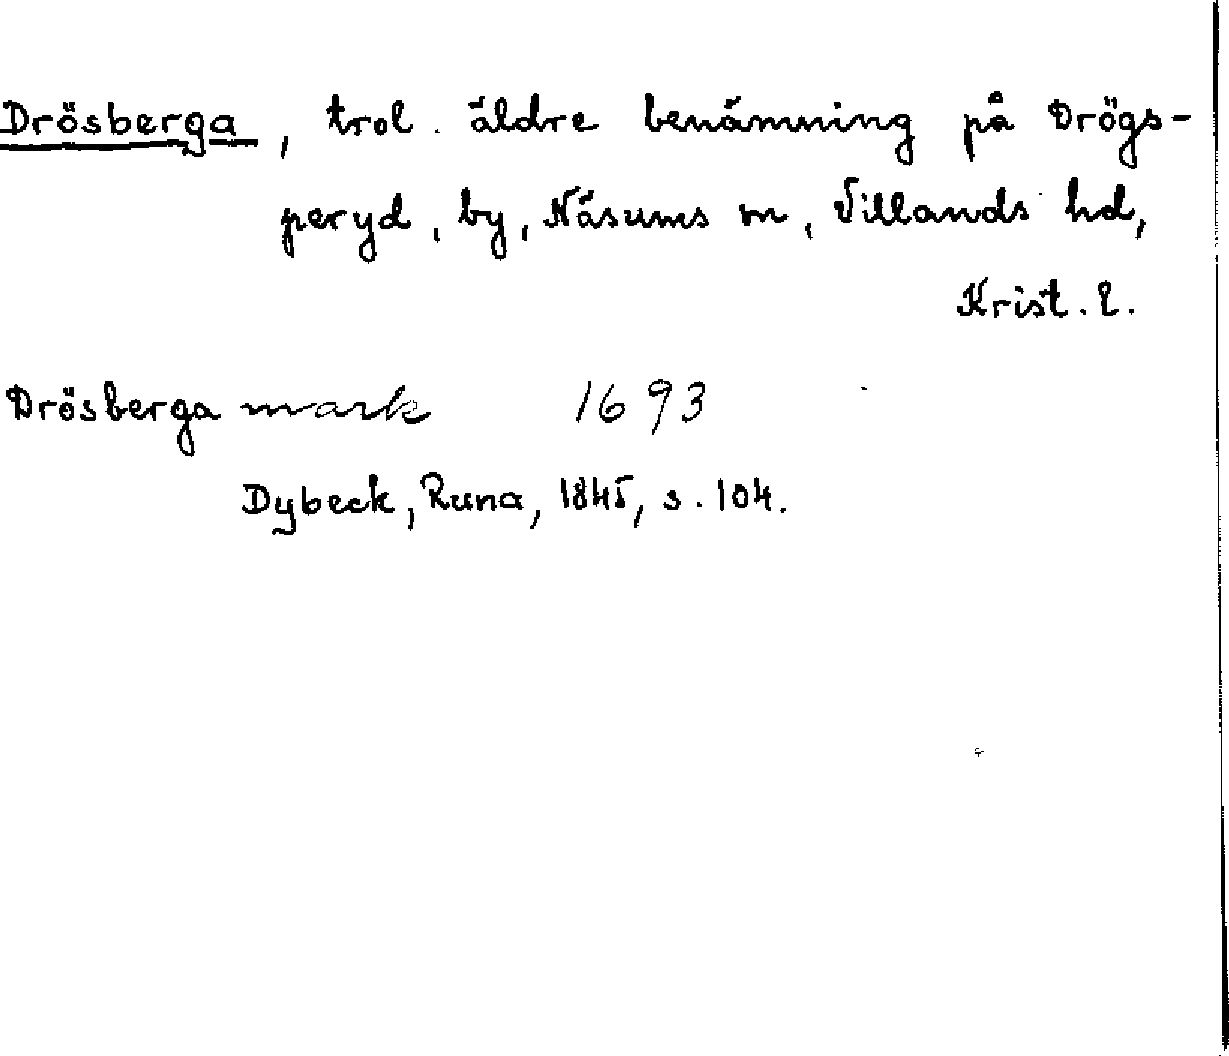 Drösberga, trol. äldre benämning på Drögs-
peryd, by, Näsums sn, Villands hd,
Krist. l.
Drösberga mark 1693
Dybeck, Runa, 1845, s. 104.